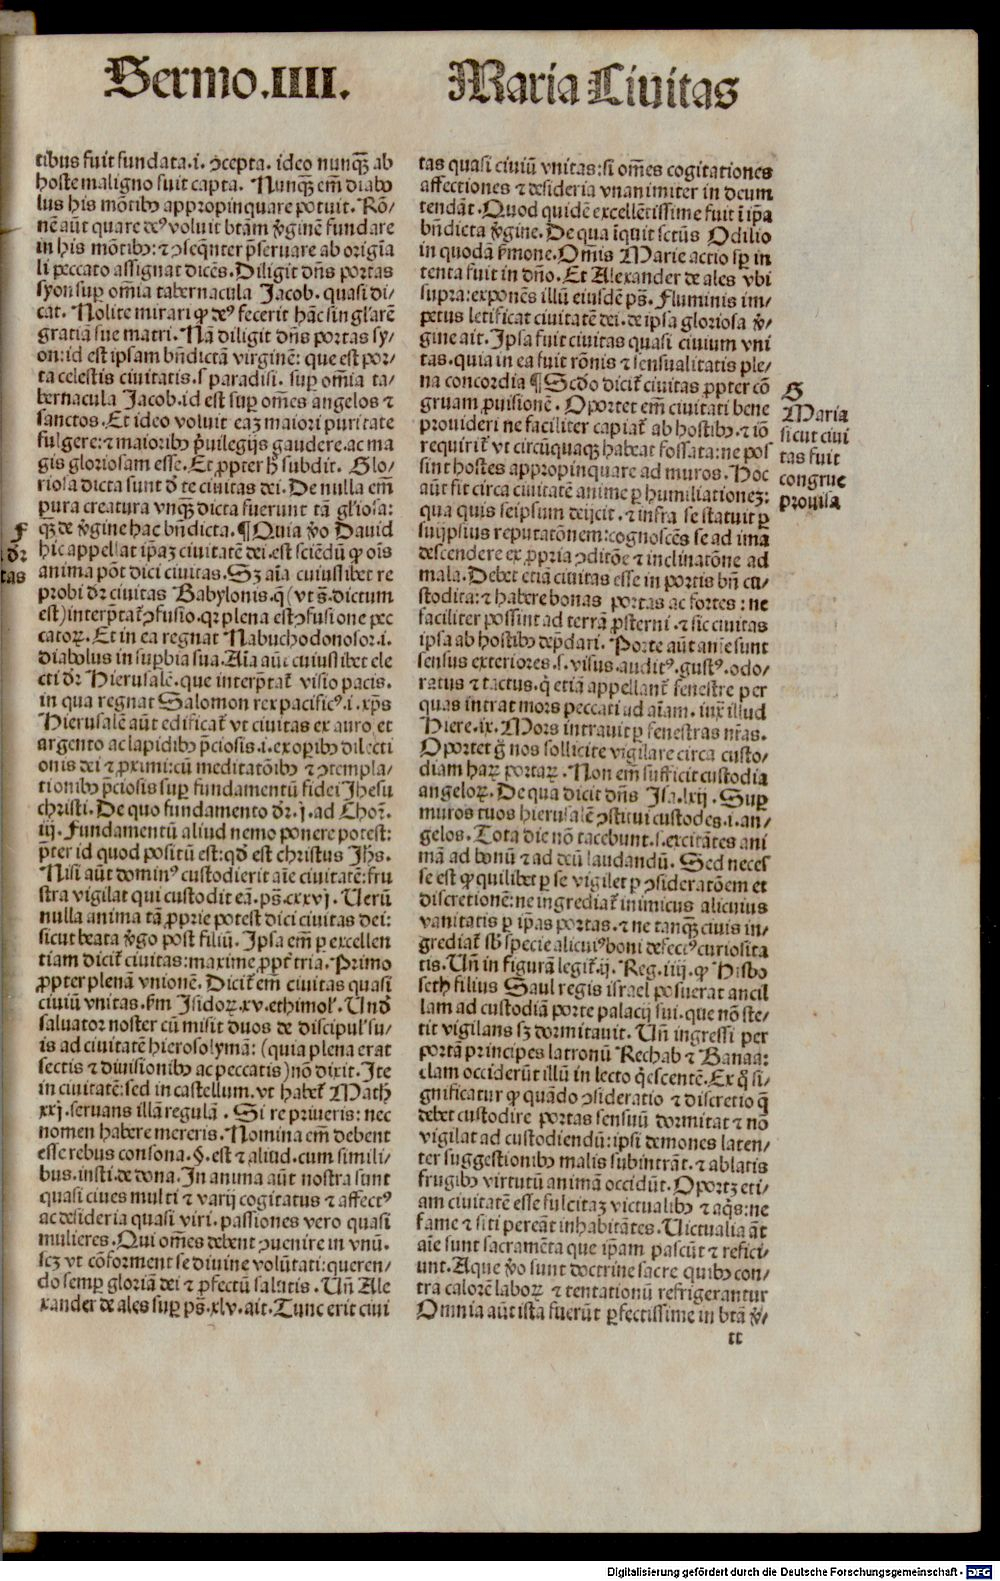 Sermo.IIII.
Maria Ciuitas
tibus fuit fundata.i. ꝯcepta. ideo nunqꝫ̃ ab
hoste maligno fuit capta. Nunqꝫ̃ em̃ diabo
lus his mõtibꝰ appropinquare potuit. Rõ/
nẽ aũt quare deꝰ voluit btãm v̓ginẽ fundare
in his mõtibꝰ: ⁊ ꝯseqũter p̃seruare ab origia
li peccato assignat dicẽs. Diligit dñs portas
syon suꝑ om̃ia tabernacula Jacob. quasi di/
cat. Nolite mirari ꝙ deꝰ fecerit hãc singl̓arẽ
gratiã sue matri. Nã diligit dñs portas sy/
on: id est ipsam bñdictã virginẽ: que est por/
ta celestis ciuitatis.ſ paradisi. suꝑ om̃ia ta/
bernacula Jacob.id est suꝑ om̃es angelos ⁊
sanctos. Et ideo voluit eaꝫ maiori puritate
fulgere: ⁊ maioribꝰ p̓uilegijs gaudere. ac ma
gis gloriosam esse. Et ꝓpter h̓ subdit. Glo/
riosa dicta sunt d̓ te ciuitas dei. De nulla em̃
pura creatura vnqꝫ̃ dicta fuerunt tã gl̓iosa:
qꝫ̃ de v̓gine hac bñdicta. ¶ Quia v̓o Dauid
hic appellat ip̃aꝫ ciuitatẽ dei. est sciẽdũ ꝙ oĩs
anima põt dici ciuitas. Sꝫ aĩa cuiuslibet re
probi dr̃ ciuitas Babylonis. q̓ (vt s̃. dictum
est) interp̃tat̃ ꝯfusio. qꝛ plena est ꝯfusione pec
catoꝝ. Et in ea regnat Nabuchodonosor.i.
diabolus in suꝑbia sua. Aĩa aũt cuiuslibet ele
cti dr̃ Hierusalẽ. que interp̃tat̃ visio pacis.
in qua regnat Salomon rex pacificꝰ.i. xp̃s
Hierusalẽ aũt edificat̃ vt ciuitas ex auro et
argento ac lapidibꝰ p̃ciosis.i. ex opibꝰ dilecti
onis dei ⁊ ꝓximi: cũ meditatõibꝰ ⁊ ꝯtempla/
tionibꝰ p̃ciosis suꝑ fundamentũ fidei Jhesu
christi. De quo fundamento dr̃.j. ad Chor̃.
iij. Fundamentũ aliud nemo ponere potest:
p̃ter id quod positũ est: qd̓ est christus Jhs̃.
Nisi aũt dominꝰ custodierit aĩe ciuitatẽ: fru
stra vigilat qui custodit eã. ps̃.cxxvj. Uerũ
nulla anima tã ꝓprie potest dici ciuitas dei:
sicut beata v̓go post filiũ. Ipsa em̃ ꝑ excellen
tiam dicit̃ ciuitas: maxime ꝓpt̃ tria. Primo
ꝓpter plenã vnionẽ. Dicit̃ em̃ ciuitas quasi
ciuiũ vnitas. fm̃ Isidoꝝ.xv. ethimol̓. Und̓
saluator noster cũ misit duos de discipul̓ su/
is ad ciuitatẽ hierosolymã: (quia plena erat
sectis ⁊ diuisionibꝰ ac peccatis) nõ dixit. Ite
in ciuitatẽ: sed in castellum. vt habet̃ Math̓
xxj. seruans illã regulã. Si re priueris: nec
nomen habere mereris. Nomina em̃ debent
esse rebus consona. §. est ⁊ aliud. cum simili/
bus. insti. de dona. In anima aũt nostra sunt
quasi ciues multi ⁊ varij cogitatus ⁊ affectꝰ
ac desideria quasi viri. passiones vero quasi
mulieres. Qui om̃es debent ꝯuenire in vnũ.
scꝫ vt cõforment se diuine volũtati: queren/
do semꝑ gloriã dei ⁊ ꝓfectũ salutis. Uñ Ale
xander de ales suꝑ ps̃.xlv. ait. Tunc erit ciui
F
dr̃
tas
tas quasi ciuiũ vnitas: si om̃es cogitationes
affectiones ⁊ desideria vnanimiter in deum
tendãt. Quod quidẽ excellẽtissime fuit ĩ ip̃a
bñdicta v̓gine. De qua ĩquit sctũs Odilio
in quodã s̓mone. Om̃is Marie actio sꝑ in
tenta fuit in dño. Et Alexander de ales vbi
supra: exponẽs illũ eiusdẽ ps̃. Fluminis im/
petus letificat ciuitatẽ dei. de ipsa gloriosa v̓/
gine ait. Ipsa fuit ciuitas quasi ciuium vni
tas. quia in ea fuit rõnis ⁊ sensualitatis ple/
na concordia ¶ Scd̓o dicit̃ ciuitas ꝓpter cõ
gruam ꝓuisionẽ. Oportet em̃ ciuitati bene
prouideri ne faciliter capiat̃ ab hostibꝰ. ⁊ iõ
requirit̃ vt circũquaqꝫ habeat fossata: ne pos
sint hostes appropinquare ad muros. Hoc
aũt fit circa ciuitatẽ anime ꝑ humiliationeꝫ:
qua quis seipsum deijcit. ⁊ infra se statuit ꝑ
suijpsius reputatõnem: cognoscẽs se ad ima
descendere ex ꝓpria ꝯditõe ⁊ inclinatõne ad
mala. Debet etiã ciuitas esse in portis bñ cu/
stodita: ⁊ habere bonas portas ac fortes: ne
faciliter possint ad terrã ꝓsterni. ⁊ sic ciuitas
ipsa ab hostibꝰ dep̃dari. Porte aũt aĩe sunt
sensus exteriores.ſ. visus. auditꝰ. gustꝰ. odo/
ratus ⁊ tactus. q̓ etiã appellant̃ fenestre per
quas intrat mors peccati ad aĩam. iux̃ illud
Hiere.ix. Mors intrauit ꝑ fenestras nr̃as.
Oportet g̓ nos sollicite vigilare circa custo/
diam haꝝ portaꝝ. Non em̃ sufficit custodia
angeloꝝ. De qua dicit dñs Isa.lxij. Suꝑ
muros tuos hierusalẽ ꝯstitui custodes.i. an/
gelos. Tota die nõ tacebunt.ſ. excitãtes ani
mã ad bonũ ⁊ ad deũ laudandũ. Sed neces
se est ꝙ quilibet ꝑ se vigilet ꝑ ꝯsideratõem et
discretionẽ: ne ingrediat̃ inimicus alicuius
vanitatis ꝑ ip̃as portas. ⁊ ne tanqꝫ ciuis in/
grediat̃ sb̓ specie alicuiꝰ boni defectꝰ curiosita
tis. Uñ in figurã legit̃.ij. Reg. iiij. ꝙ Hisbo
seth filius Saul regis israel posuerat ancil
lam ad custodiã porte palacij sui. que nõ ste/
tit vigilans sꝫ dormitauit. Uñ ingressi per
portã principes latronũ Rechab ⁊ Banaa:
clam occiderũt illũ in lecto q̓escentẽ. Ex q̓ si/
gnificatur ꝙ quãdo ꝯsideratio ⁊ discretio q̃
debet custodire portas sensuũ dormitat ⁊ nõ
vigilat ad custodiendũ: ipsi demones laten/
ter suggestionibꝰ malis subintrãt. ⁊ ablatis
frugibꝰ virtutũ animã occidũt. Oportꝫ eti/
am ciuitatẽ esse fulcitaꝫ victualibꝰ ⁊ aq̓s: ne
fame ⁊ siti pereãt inhabitãtes. Uictualia aũt
aĩe sunt sacramẽta que ip̃am pascũt ⁊ refici/
unt. Aque v̓o sunt doctrine sacre quibꝰ con/
tra calorẽ laboꝝ ⁊ tentationũ refrigerantur
Omnia aũt ista fuerũt ꝑfectissime in btã v̓/
G
Maria
sicut ciui
tas fuit
congrue
prouisa
II
Digitalisierung gefördert durch die Deutsche Forschungsgemeinschaft - DFG